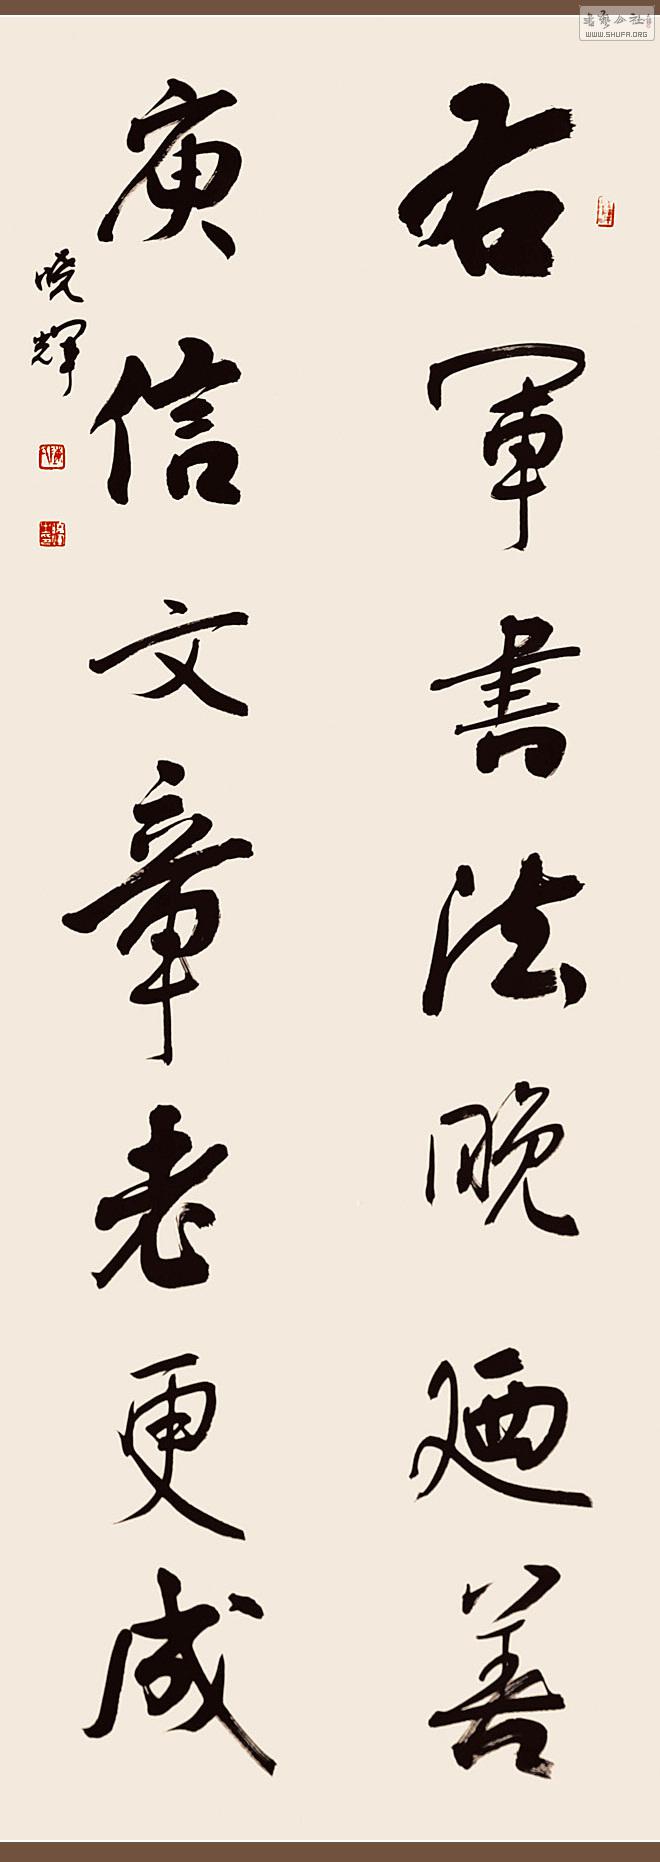 右軍書法晚廼善
庾信文章老更成
曉輝
书艺公社
WWW.SHUFA.ORG